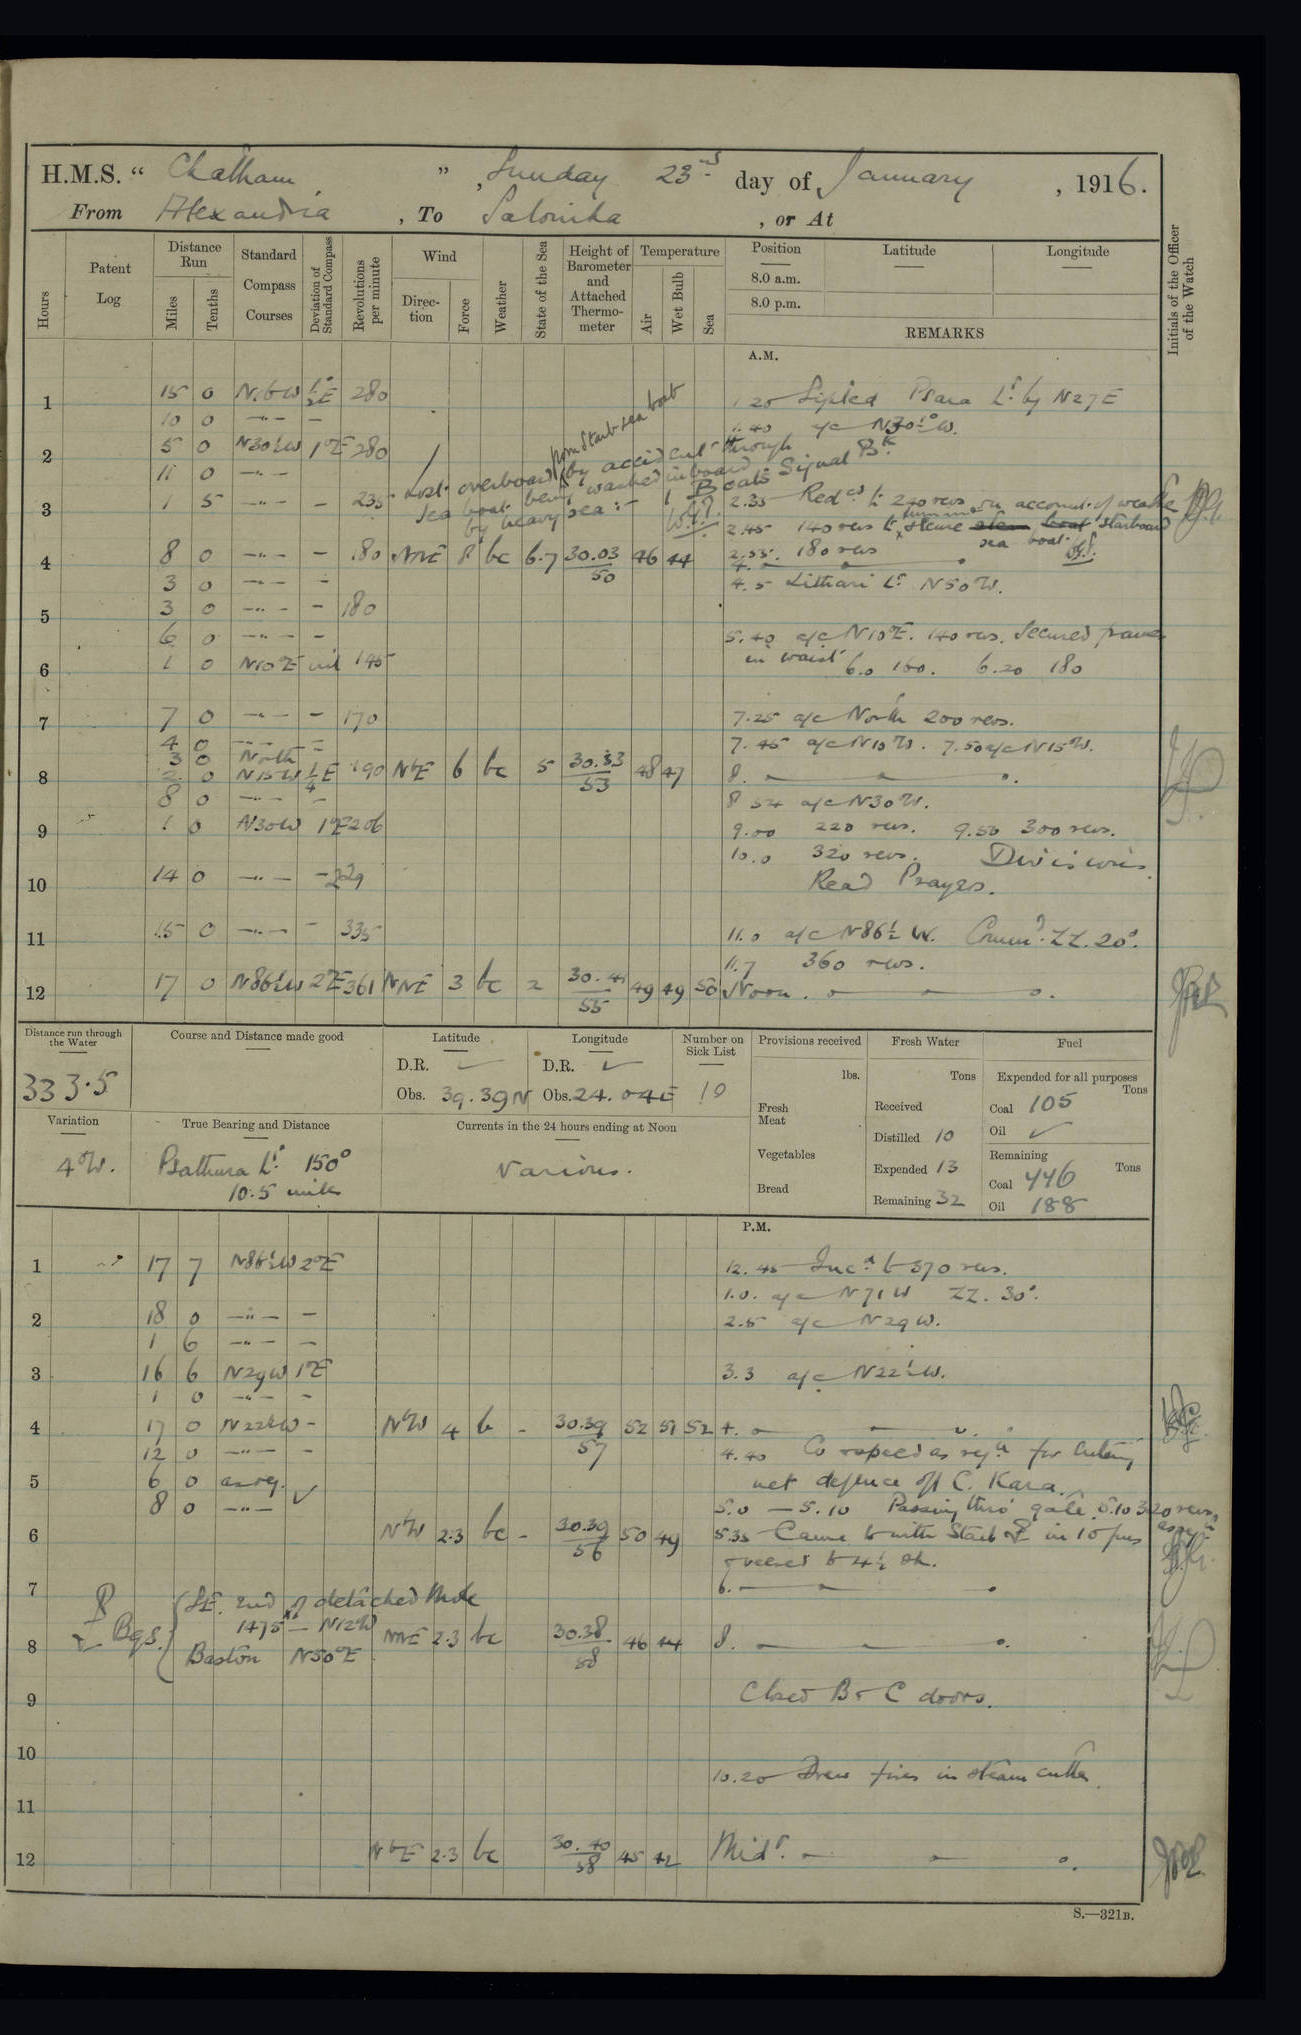 H.M.S. "Chatham", Sunday 23rd day of January, 1916.
From Alexandria, To Salonika, or At
Hours
Patent Log
Distance Run
Miles
Tenths
Standard Compass Courses
Deviation of Standard Compass
Revolutions per minute
Wind
Direction
Force
Weather
State of the Sea
Height of Barometer and Attached Thermometer
Temperature
Air
Wet Bulb
Sea
Position
Latitude
Longitude
8.0 a.m.
8.0 p.m.
REMARKS
Initials of the Officer of the Watch
A.M.
1 15 0 280 1.20 Sighted Psara Lt. by N27E
10 0 —"— – 1.40 a/c N30½°W.
2 5 0 N30½W 1°E 280
11 0 —"—
Lost overboard by accident through
from Starb sea boat
sea boat being washed inboard
by heavy sea :- 1 Boats Signal Bk.
3 1 5 —"— – 235 2.35 Red'ed to 240 revs on account of weather
2.45 140 revs to secure starboard
sea boat.
4 8 0 —"— – 180 NNE 8 bc 6.7 30.03 50 46 44 2.55. 180 revs
4.
3 0 —"— – 4.5 Lithari Lt N50W.
5 3 0 —"— – 180
6 0 —"— – 5.40 a/c N10°E. 140 revs. Secured
in waist 6.0 160. 6.20 180
6 1 0 N10°E nil 145
7 7 0 —"— – 170 7.25 a/c North 200 revs.
4 0 —"— – 7.45 a/c N10W. 7.50 a/c N15W.
3 0 North
8 2 0 N15W ¼E 190 NbE 6 bc 5 30.33 53 48 47 8.
8 0 —"— – 8.54 a/c N30W.
9 1 0 N30W 1°E 206 9.00 220 revs. 9.50 300 revs.
10.0 320 revs. Divisions.
10 14 0 —"— – 229 Read Prayers.
11 15 0 —"— – 335 11.0 a/c N86½W. Comm'd. ZZ. 20°.
11.7 360 revs.
12 17 0 N86½W 2°E 361 NNE 3 bc 2 30.41 55 49 49 50 Noon.
Distance run through the Water
333.5
Course and Distance made good
Latitude
D.R. ✓
Obs. 39.39N
Longitude
D.R. ✓
Obs. 24.04E
Number on Sick List
10
Provisions received
lbs.
Fresh Meat
Vegetables
Bread
Fresh Water
Tons
Received
Distilled 10
Expended 13
Remaining 32
Fuel
Expended for all purposes
Tons
Coal 105
Oil ✓
Remaining
Tons
Coal 446
Oil 188
Variation
4°W.
True Bearing and Distance
Psathura Lt. 150°
10.5 miles
Currents in the 24 hours ending at Noon
Various.
P.M.
1 17 7 N86½W 2°E 12.45 Inc'd to 370 revs.
1.0. a/c N71W ZZ. 30°.
2 18 0 —"— – 2.5 a/c N29W.
1 6 —"— –
3 16 6 N29W 1°E 3.3 a/c N22½W.
1 0 —"— –
4 17 0 N22½W – NbW 4 b - 30.39 57 52 51 52 4.
12 0 —"— – 4.40 Co & speed as req'd for entering
5 6 0 as req. ✓ net defence off C. Kara.
8 0 —"— 5.0 — 5.10 Passing thro' gate. 5.10 320 revs
as req'd
6 NbW 2.3 bc - 30.39 56 50 49 5.35 Came to with Starb ⚓ in 10 fms
& veered to 4½ sh.
7 6.
⚓ Bgs. { SE. End of detached Mole
1475x — N12W
Baston N50°E
8 NNE 2.3 bc 30.38 58 46 44 8.
9 Closed B & C doors.
10 10.20 Drew fires in steam cutter.
11
12 NbE 2.3 bc 30.40 58 45 42 Midt.
S.—321B.